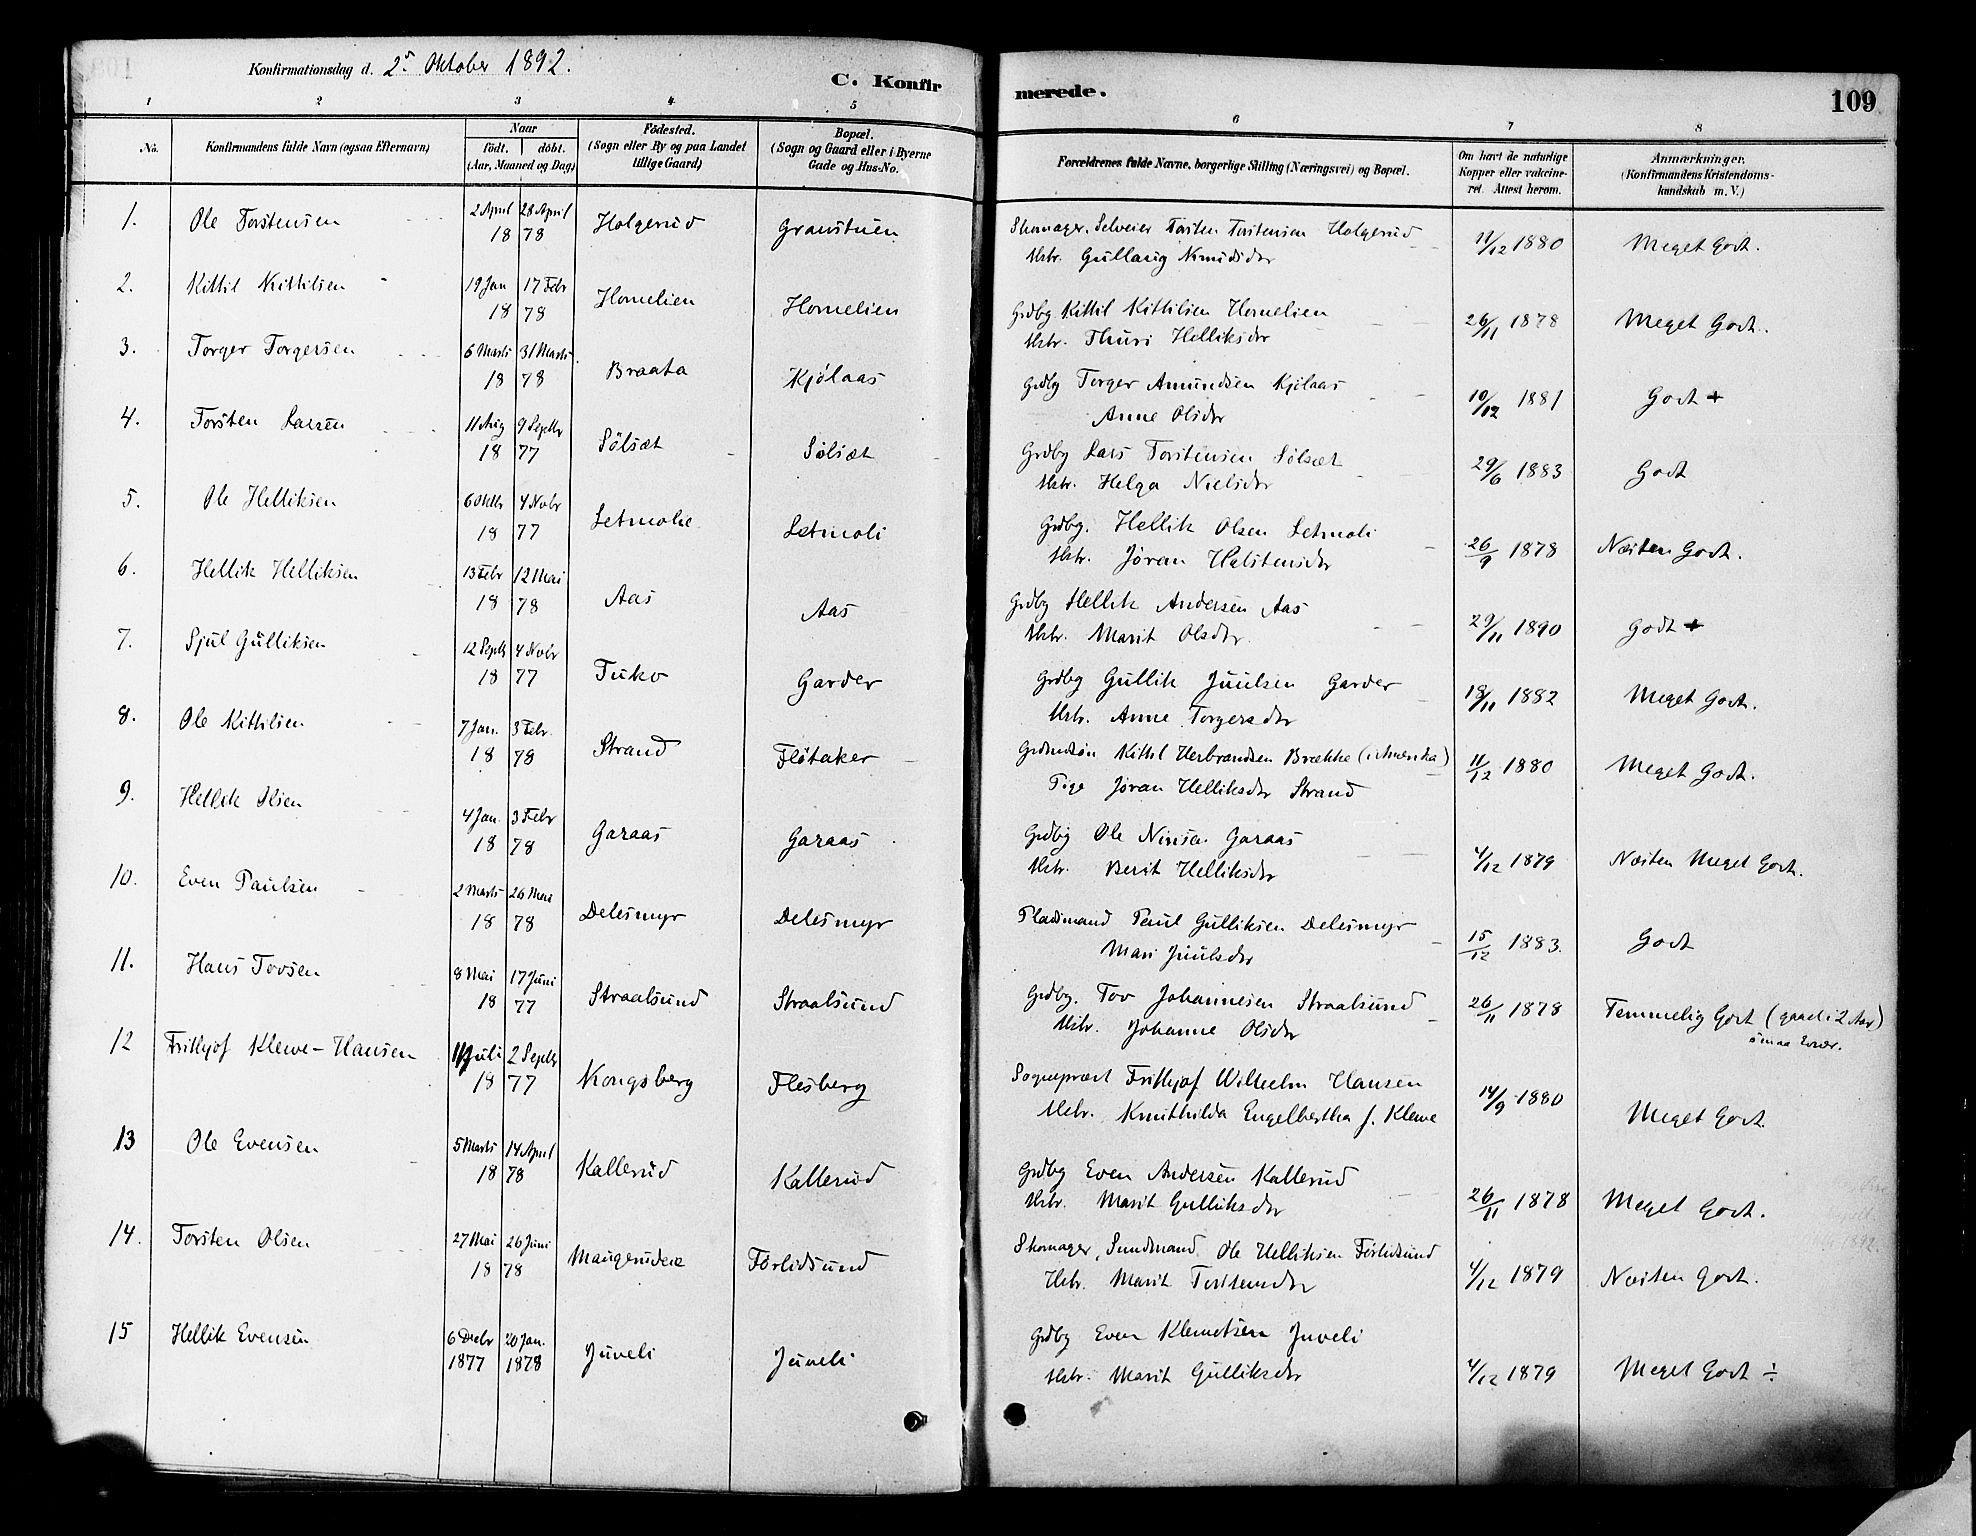 Konfirmationsdag d. 2 Oktober 1892.
C. Konfirmerede.
109
1 2 3 4 5 6 7 8
No. Konfirmandens fulde Navn (ogsaa Efternavn) Naar født. døbt. (Aar, Maaned og Dag) Fødested. (Sogn eller By og paa Landet tillige Gaard) Bopæl. (Sogn og Gaard eller i Byerne Gade og Hus-No. Forældrenes fulde Navne, borgerlige Stilling (Næringsvei) og Bopæl. Om havt de naturlige Kopper eller vaccineret. Attest herom. Anmærkninger. (Konfirmandens Kristendomskundskab m. V.)
1. Ole Torstensen 2 April 28 April 18 78 Holgerud Granstuen Skomager, Selveier Torsten Torstensen Holgerud 11/12 1880 Meget Godt.
Hstr. Gullaug
2. Kittil Kittilsen 19 Jan 17 Febr 18 78 Homelien Homelien Grdbg Kittil Kittilsen Homelien 26/11 1878 Meget Godt.
Hstr. Thuri Helliksdr
3. Torger Torgersen 6 Marts 31 Marts 18 78 Braata Kjølaas Grdbg Torger Amundsen Kjølaas 10/12 1881 Godt +
Anne Olsdr
4. Torsten Larsen 11 Aug 9 Septbr 18 77 Sølsæt Sølsæt Grdbg Lars Torstensen Sølsæt 29/6 1883 Godt
Hstr. Helga Nielsdr
5. Ole Helliksen 6 Oktbr 4 Novbr 18 77 Letmolie Letmoli Grdbg. Hellik Olsen Letmoli 26/9 1878 Næsten Godt.
Hstr. Jøran Halstensdr
6. Hellik Helliksen 13 Febr 12 Mai 18 78 Aas Aas Grdbg Hellik Andersen Aas 29/11 1890 Godt +
Hstr. Marit Olsdr.
7. Sjul Gulliksen 12 Septb 4 Nobr 18 77 Tuko Garder Grdbg Gullik Juulsen Garder 18/11 1882 Meget Godt.
Hstr. Anne Torgersdr
8. Ole Kittilsen 7 Jan. 3 Febr. 18 78 Strand Fløtaker Grdmdsøn Kittil Herbrandsen Brække (i Amerika) 11/12 1880 Meget Godt.
Pige Jøran Helliksdr Strand
9. Hellik Olsen 4 Jan. 3 Febr 18 78 Garaas Garaas Grdbg Ole Garaas 4/12 1879 Næsten Meget Godt.
Hstr. Berit Helliksdr
10. Even Paulsen 2 Marts 26 Mai 18 78 Delesmyr Delesmyr Pladsmand Paul Gulliksen Delesmyr 15/12 1883. Godt
Mari Juulsdr
11. Hans Tovsen 8 Mai 17 Juni 18 77 Straalsund Straalsund Grdbg. Tov Johannesen Straalsund 26/11 1878 Temmelig Godt (gaaet i 2 Aar)
Hstr. Johanne Olsdr
12 Frithjof Klewe-Hansen 11 Juli 2 Septbr 18 77 Kongsberg Flesberg Sognepræst Frithjof Wilhelm Hansen 14/9 1880 Meget Godt.
Hstr. Engelbertha f. Klewe
13 Ole Evensen 5 Marts 14 April 18 78 Kallerud Kallerud Grdbg Even Andersen Kallerud 26/11 1878 Meget Godt.
Hstr. Marit Gulliksdr
14. Torsten Olsen 27 Mai 26 Juni 18 78 Førlidsund Skomager, Sundmand Ole Helliksen Førlidsund 4/12 1879 Næsten Godt.
Hstr. Marit Torstensdr
15 Hellik Evensen 6 Decbr 20 Jan. 1877 1878 Juveli Juveli Grdbg Even Klemetsen Juveli 4/12 1879 Meget Godt ÷
Hstr. Marit Gulliksdr